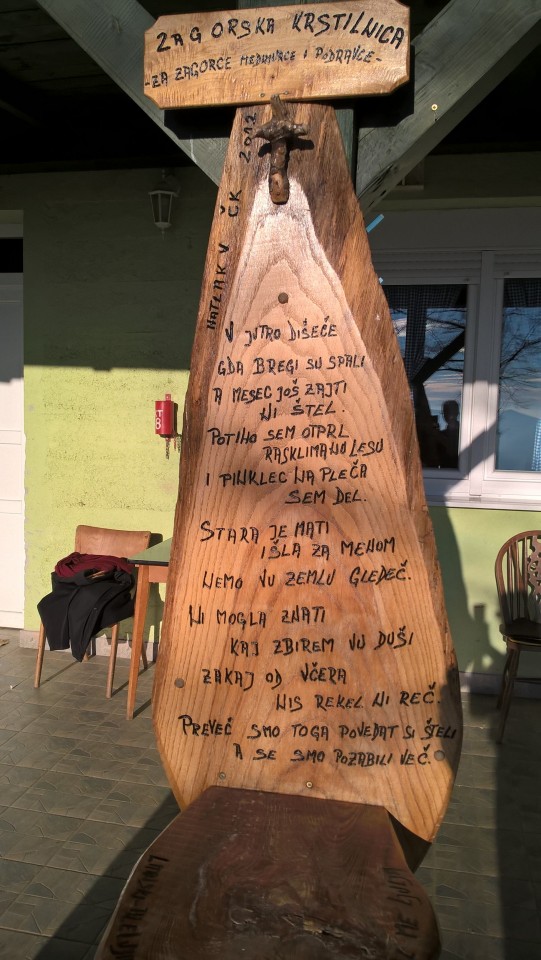 ZAGORSKA KRSTILNICA
-ZA ZAGORCE MEĐIMURCE I PODRAVCE-
ČK 2012
V JUTRO DIŠEČE
GDA BREGI SU SPALI
A MESEC JOŠ ZAJTI
NI ŠTEL.
POTIHO SEM OTPRL
RASKLIMANO LESU
I PINKLEC NA PLEČA
SEM DEL.
STARA JE MATI
IŠLA ZA MENOM
NEMO VU ZEMLU GLEDEČ.
NI MOGLA ZNATI
KAJ ZBIREM VU DUŠI
ZAKAJ OD VČERA
NIS REKEL NI REČ.
PREVEČ SMO TOGA POVEDAT SI ŠTELI
A SE SMO POZABILI VEČ.